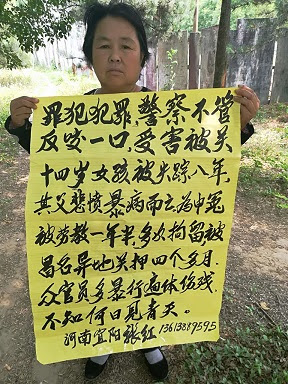 罪犯犯罪,警察不管
反咬一口,受害被关
十四岁女孩被失踪八年,
其父悲愤暴病而亡,为申冤
被劳教一年半,多次拘留被
昌名异地关押四个多月.
众官员多暴行遍体伤残,
不知何日见青天。
河南宜阳张红 13613889595